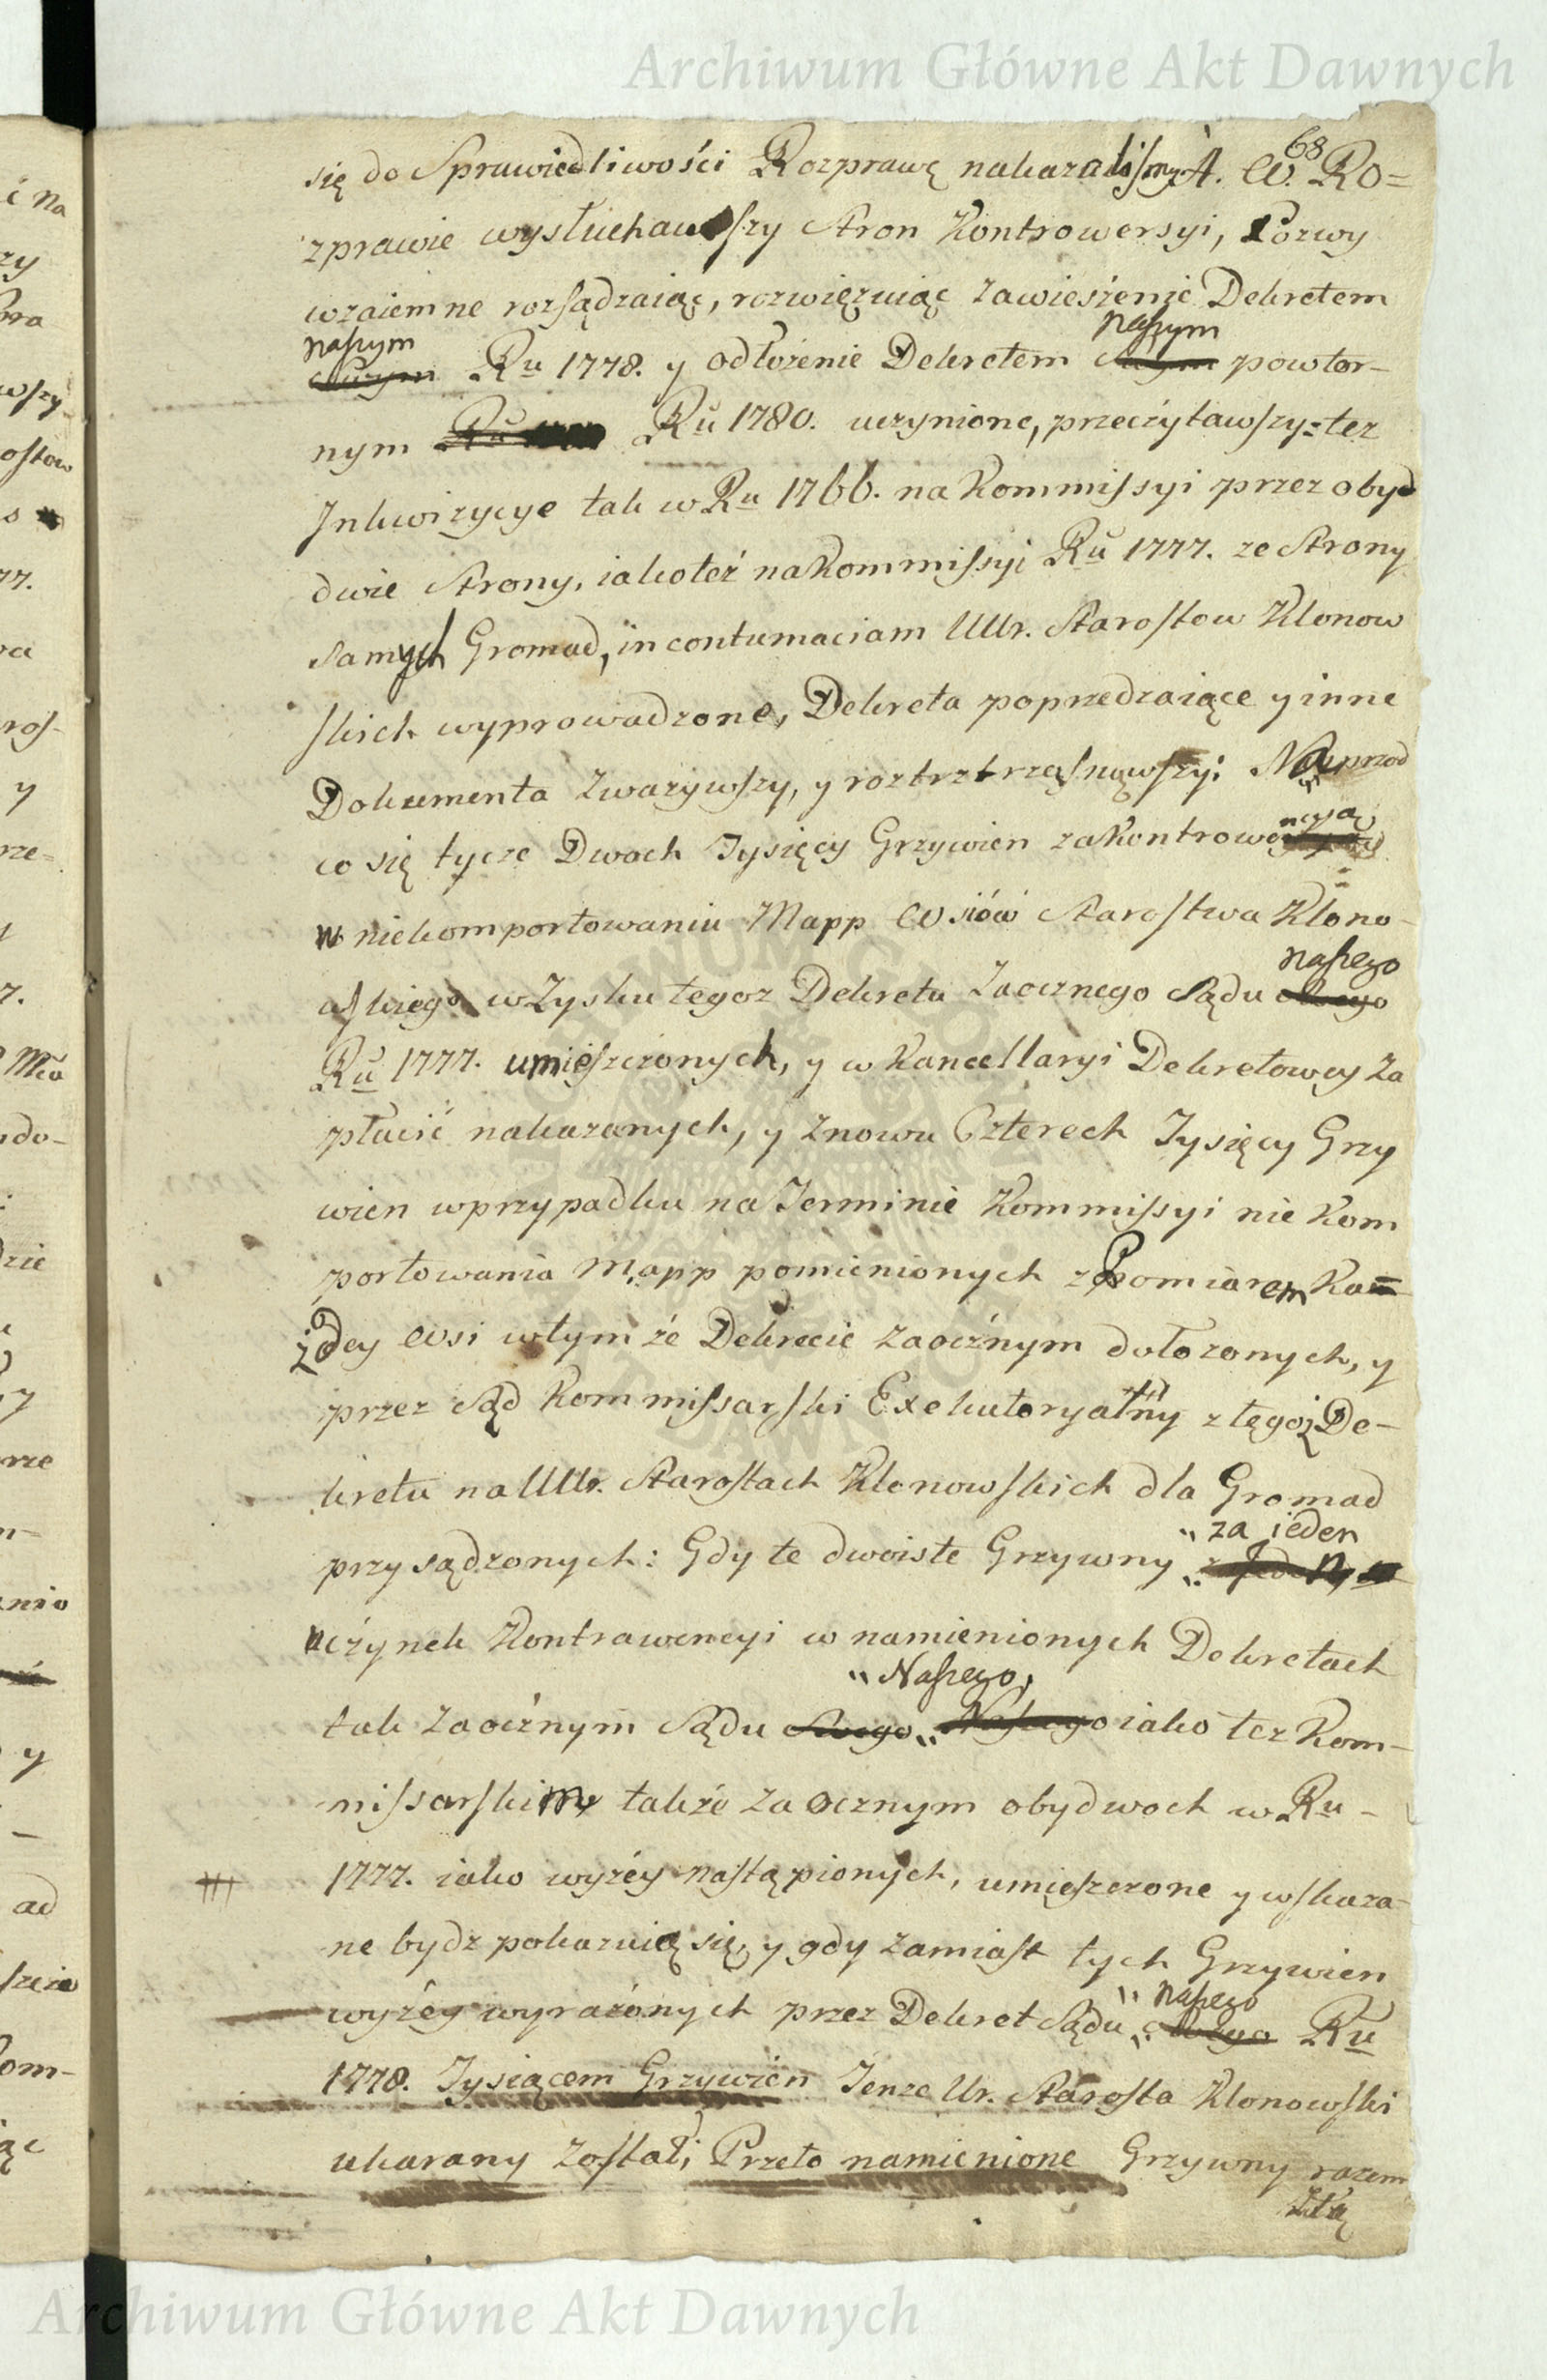 Archiwum Główne Akt Dawnych
68
się do Sprawiedliwości Rozprawę nakazaliśmy. A. W. Ro=
zprawie wysłuchawszy Stron Kontrowersyi, Pozwy
wzaiemne rozsądzaiąc, rozwięzuiąc zawieszenie Dekretem
naszym naszym
Ru 1778. y odłożenie Dekretem powtor-
nym Ru 1780. uczynione, przeczytawszy-tez
Inkwizycye tak w Ru 1766. na Kommissyi przez obyd
dwie Strony, iakoteż na Kommissyi Ru 1777. ze Strony
samych Gromad, in contumaciam UUr. Starostow Klonow
skich wyprowadzone, Dekreta poprzedzaiące y inne
Dokumenta zważywszy, y roztrztrząsnąwszy: Nayprzod
co się tycze Dwoch Tysięcy Grzywien za Kontrawe
ncyą
w niekomportowaniu Mapp Wsiów Starostwa Klono-
naszego
wskiego w Zysku tegoz Dekretu Zaocznego Sądu
Ru 1777. umieszczonych, y w Kancellaryi Dekretowey za
płacić nakazanych, y znowu Czterech Tysięcy Grzy
wien w przypadku na Terminie Kommissyi nie kom
portowania Mapp pomienionych z Pomiarem Ka=
żdey Wsi w tym że Dekrecie zaocźnym dołozonych, y
przez Sąd Kommissarski Exekutoryalny z tegoż De-
kretu na UUr. Starostach Klonowskich dla Gromad
przysądzonych: Gdy te dwoiste Grzywny
za ieden
uczynek Kontrawencyi w namienionych Dekretach
Naszego,
tak zaocźnym Sądu iako tez Kom-
missarskim także zaocznym obydwoch w Ru-
1777. iako wyżey nastąpionych, umieszczone y wskaza-
ne bydz pokazuią się, y gdy zamiast tych Grzywien
naszego
wyżey wyrażonych przez Dekret Sądu Ru
1778. Tysiącem Grzywien Tenze Ur. Starosta Klonowski
ukarany został; Przeto namienione Grzywny razem
Ztą
Archiwum Główne Akt Dawnych